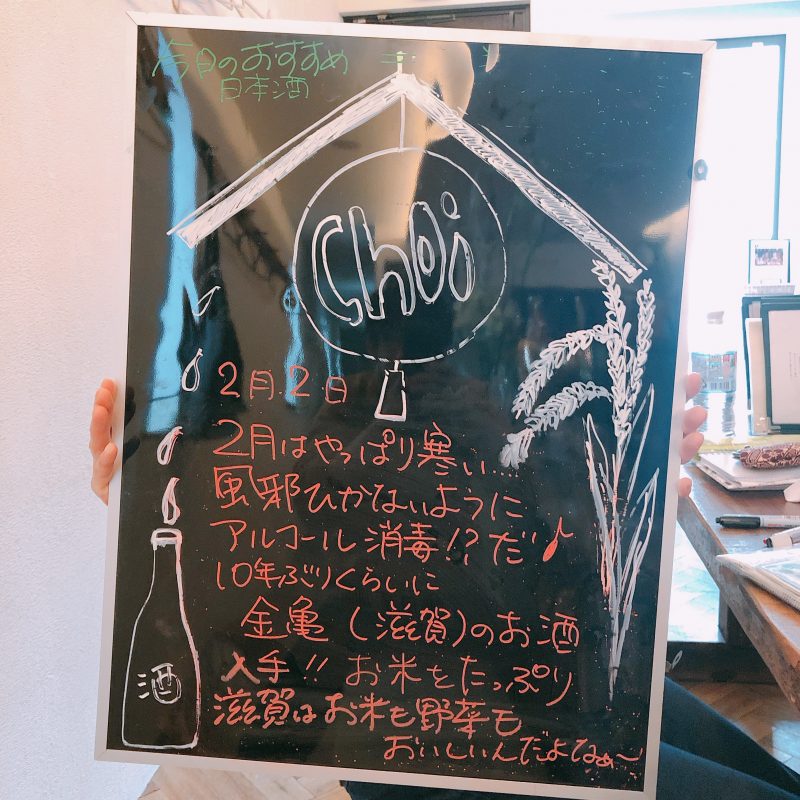 今日のおすすめ
日本酒
Choi
2月2日
2月はやっぱり寒い...
風邪ひかないように
アルコール消毒!?だ♪
10年ぶりくらいに
金亀(滋賀)のお酒
入手!!お米をたっぷり
滋賀はお米も野菜も
おいしいんだよなぁ〜
酒